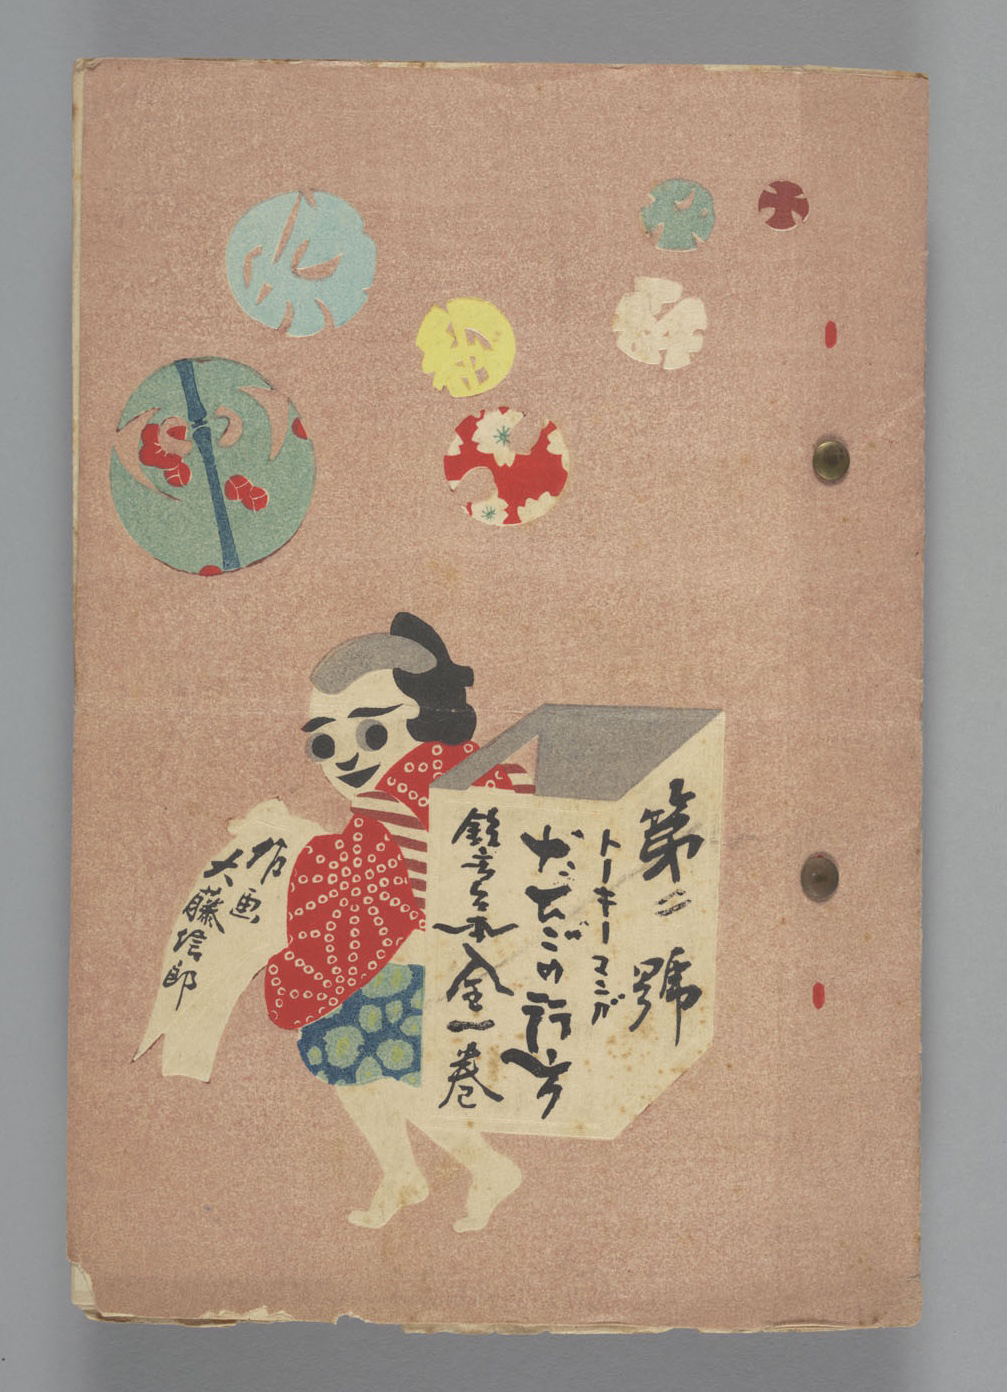 第二號
トーキーマンガ
だんごの行方
全一巻
版画
大藤絵郎